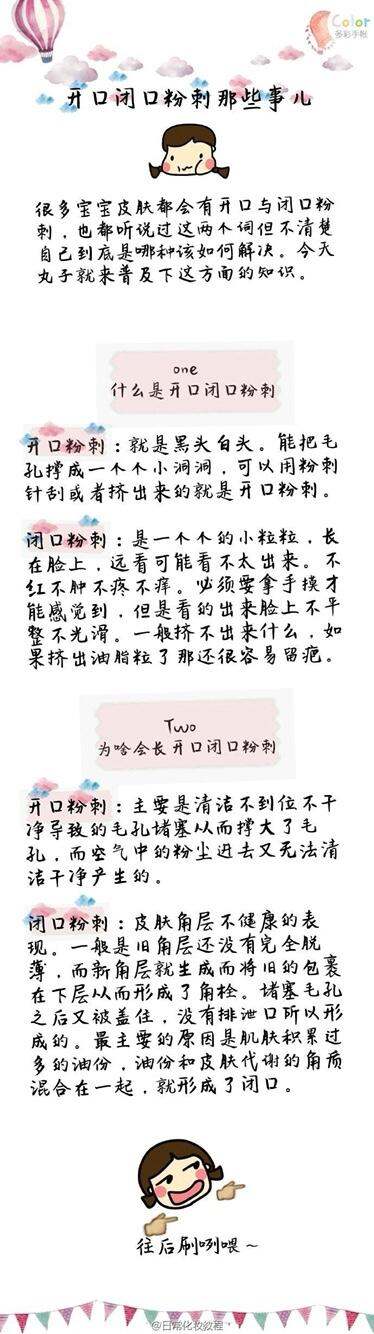 Color
多彩手帐
开口闭口粉刺那些事儿
很多宝宝皮肤都会有开口与闭口粉
刺，也都听说过这两个词但不清楚
自己到底是哪种该如何解决。今天
丸子就来普及下这方面的知识。
one
什么是开口闭口粉刺
开口粉刺：就是黑头白头。能把毛
孔撑成一个个小洞洞，可以用粉刺
针刮或者挤出来的就是开口粉刺。
闭口粉刺：是一个个的小粒粒，长
在脸上，远看可能看不太出来。不
红不肿不疼不痒。必须要拿手摸才
能感觉到，但是看的出来脸上不平
整不光滑。一般挤不出来什么，如
果挤出油脂粒了那还很容易留疤。
Two
为啥会长开口闭口粉刺
开口粉刺：主要是清洁不到位不干
净导致的毛孔堵塞从而撑大了毛
孔，而空气中的粉尘进去又无法清
洁干净产生的。
闭口粉刺：皮肤角层不健康的表
现。一般是旧角层还没有完全脱
薄，而新角层就生成而将旧的包裹
在下层从而形成了角栓。堵塞毛孔
之后又被盖住，没有排泄口所以形
成的。最主要的原因是肌肤积累过
多的油份，油份和皮肤代谢的角质
混合在一起，就形成了闭口。
往后刷咧喂～
@日常化妆教程